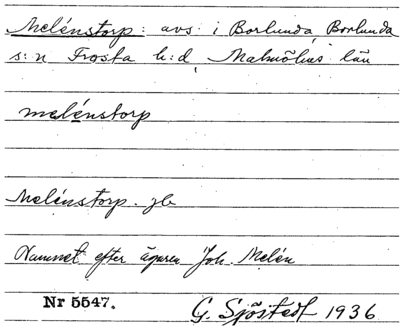 Melénstorp: avs. i Borlunda, Borlunda
s:n Frosta h:d, Malmöhus län
melénstorp
Melénstorp. jb
Namnet efter ägaren Joh. Melén
Nr 5547. G. Sjöstedt 1936